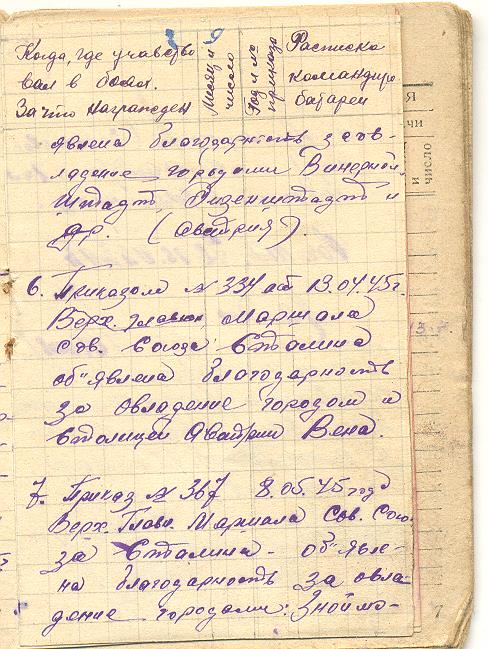 Когда, где участво
вал в боях.
За что награжден
Месяц и
число
Год и №
приказа
Расписка
командира
батареи
явлена благодарность за ов-
ладение городами Винерной-
штадт Эизенштадт и
др. (Австрия).
6. Приказом № 334 от 13.04.45г.
Верх. главнок Маршала
сов. Союза Сталина
об"явлена благодарность
за овладение городом и
столицей Австрии Вена.
7. Приказ № 367 8.05.45 год
Верх. Главн. Маршала Сов. Сою-
за Сталина - об"явле-
на благодарность за овла-
дение городами: Зноймо-
Я
чи
и
число
7